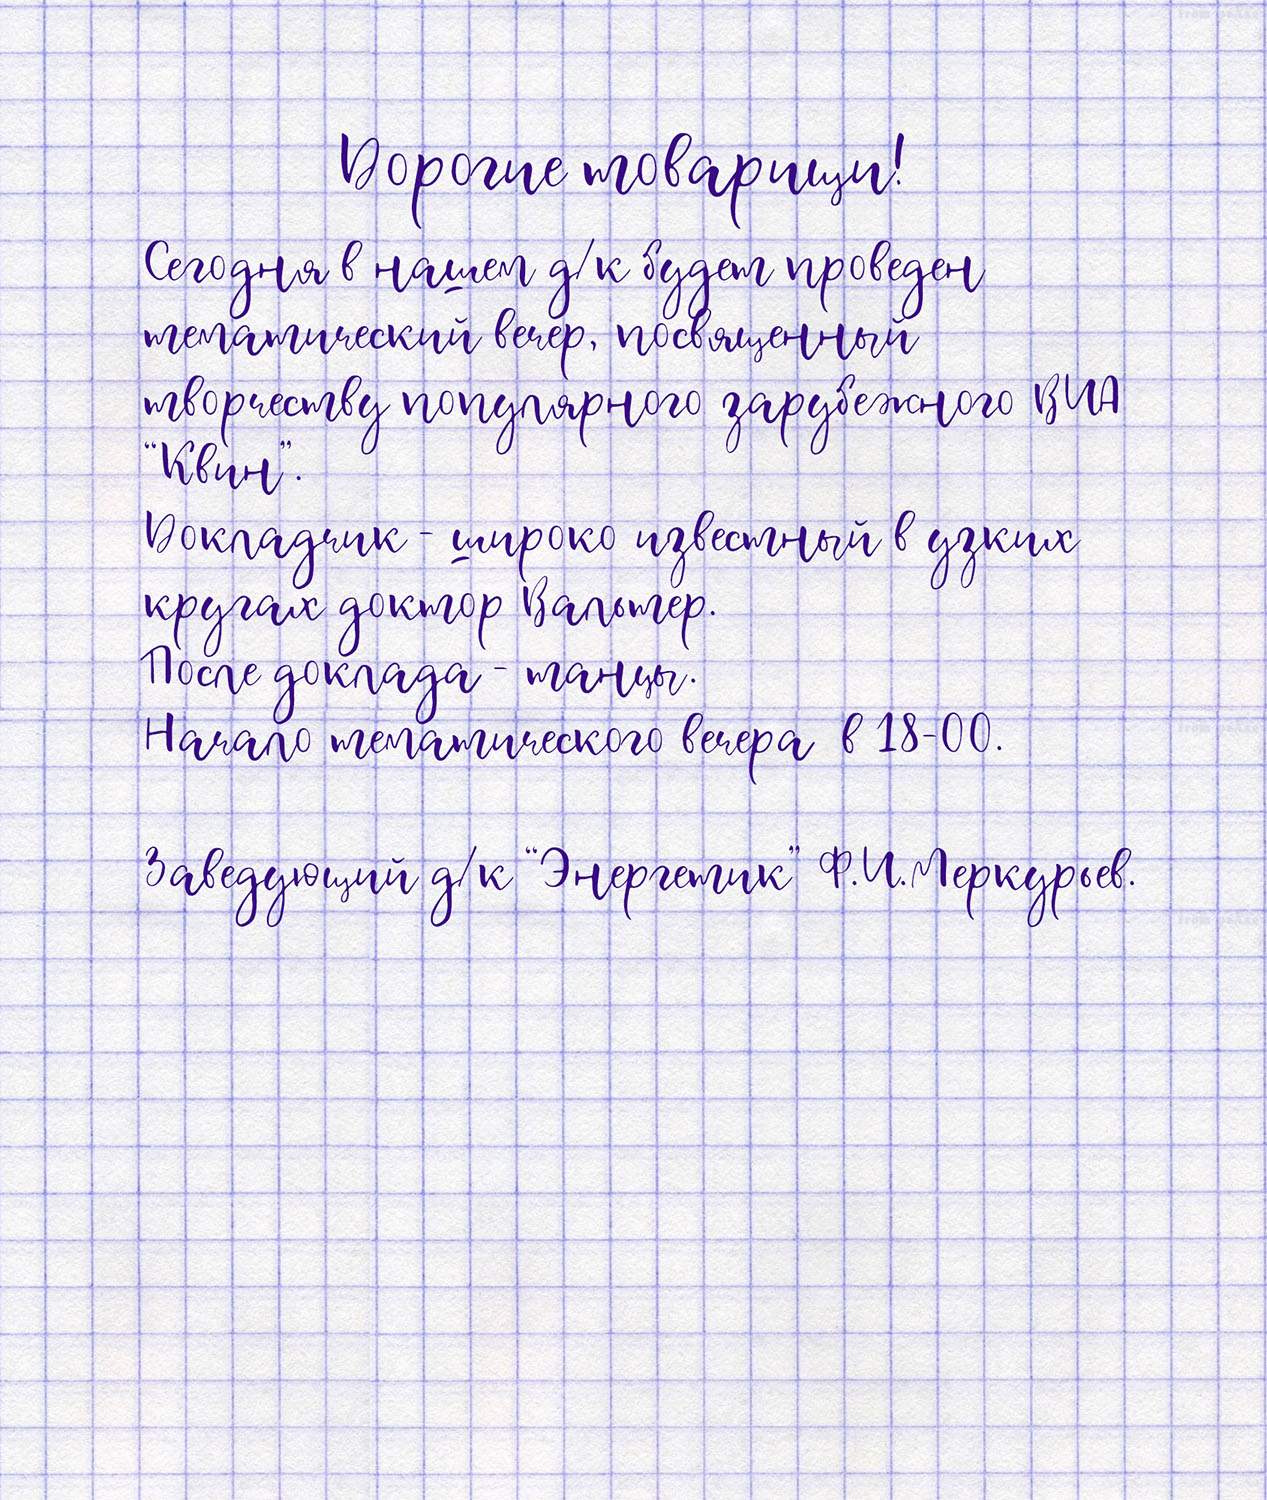 Дорогие товарищи!
Сегодня в нашем д/к будет проведен
тематический вечер, посвященный
творчеству популярного зарубежного ВИА
“Квин”.
Докладчик - широко известный в узких
кругах доктор Вальтер.
После доклада - танцы.
Начало тематического вечера в 18-00.
Заведующий д/к “Энергетик” Ф.И.Меркурьев.